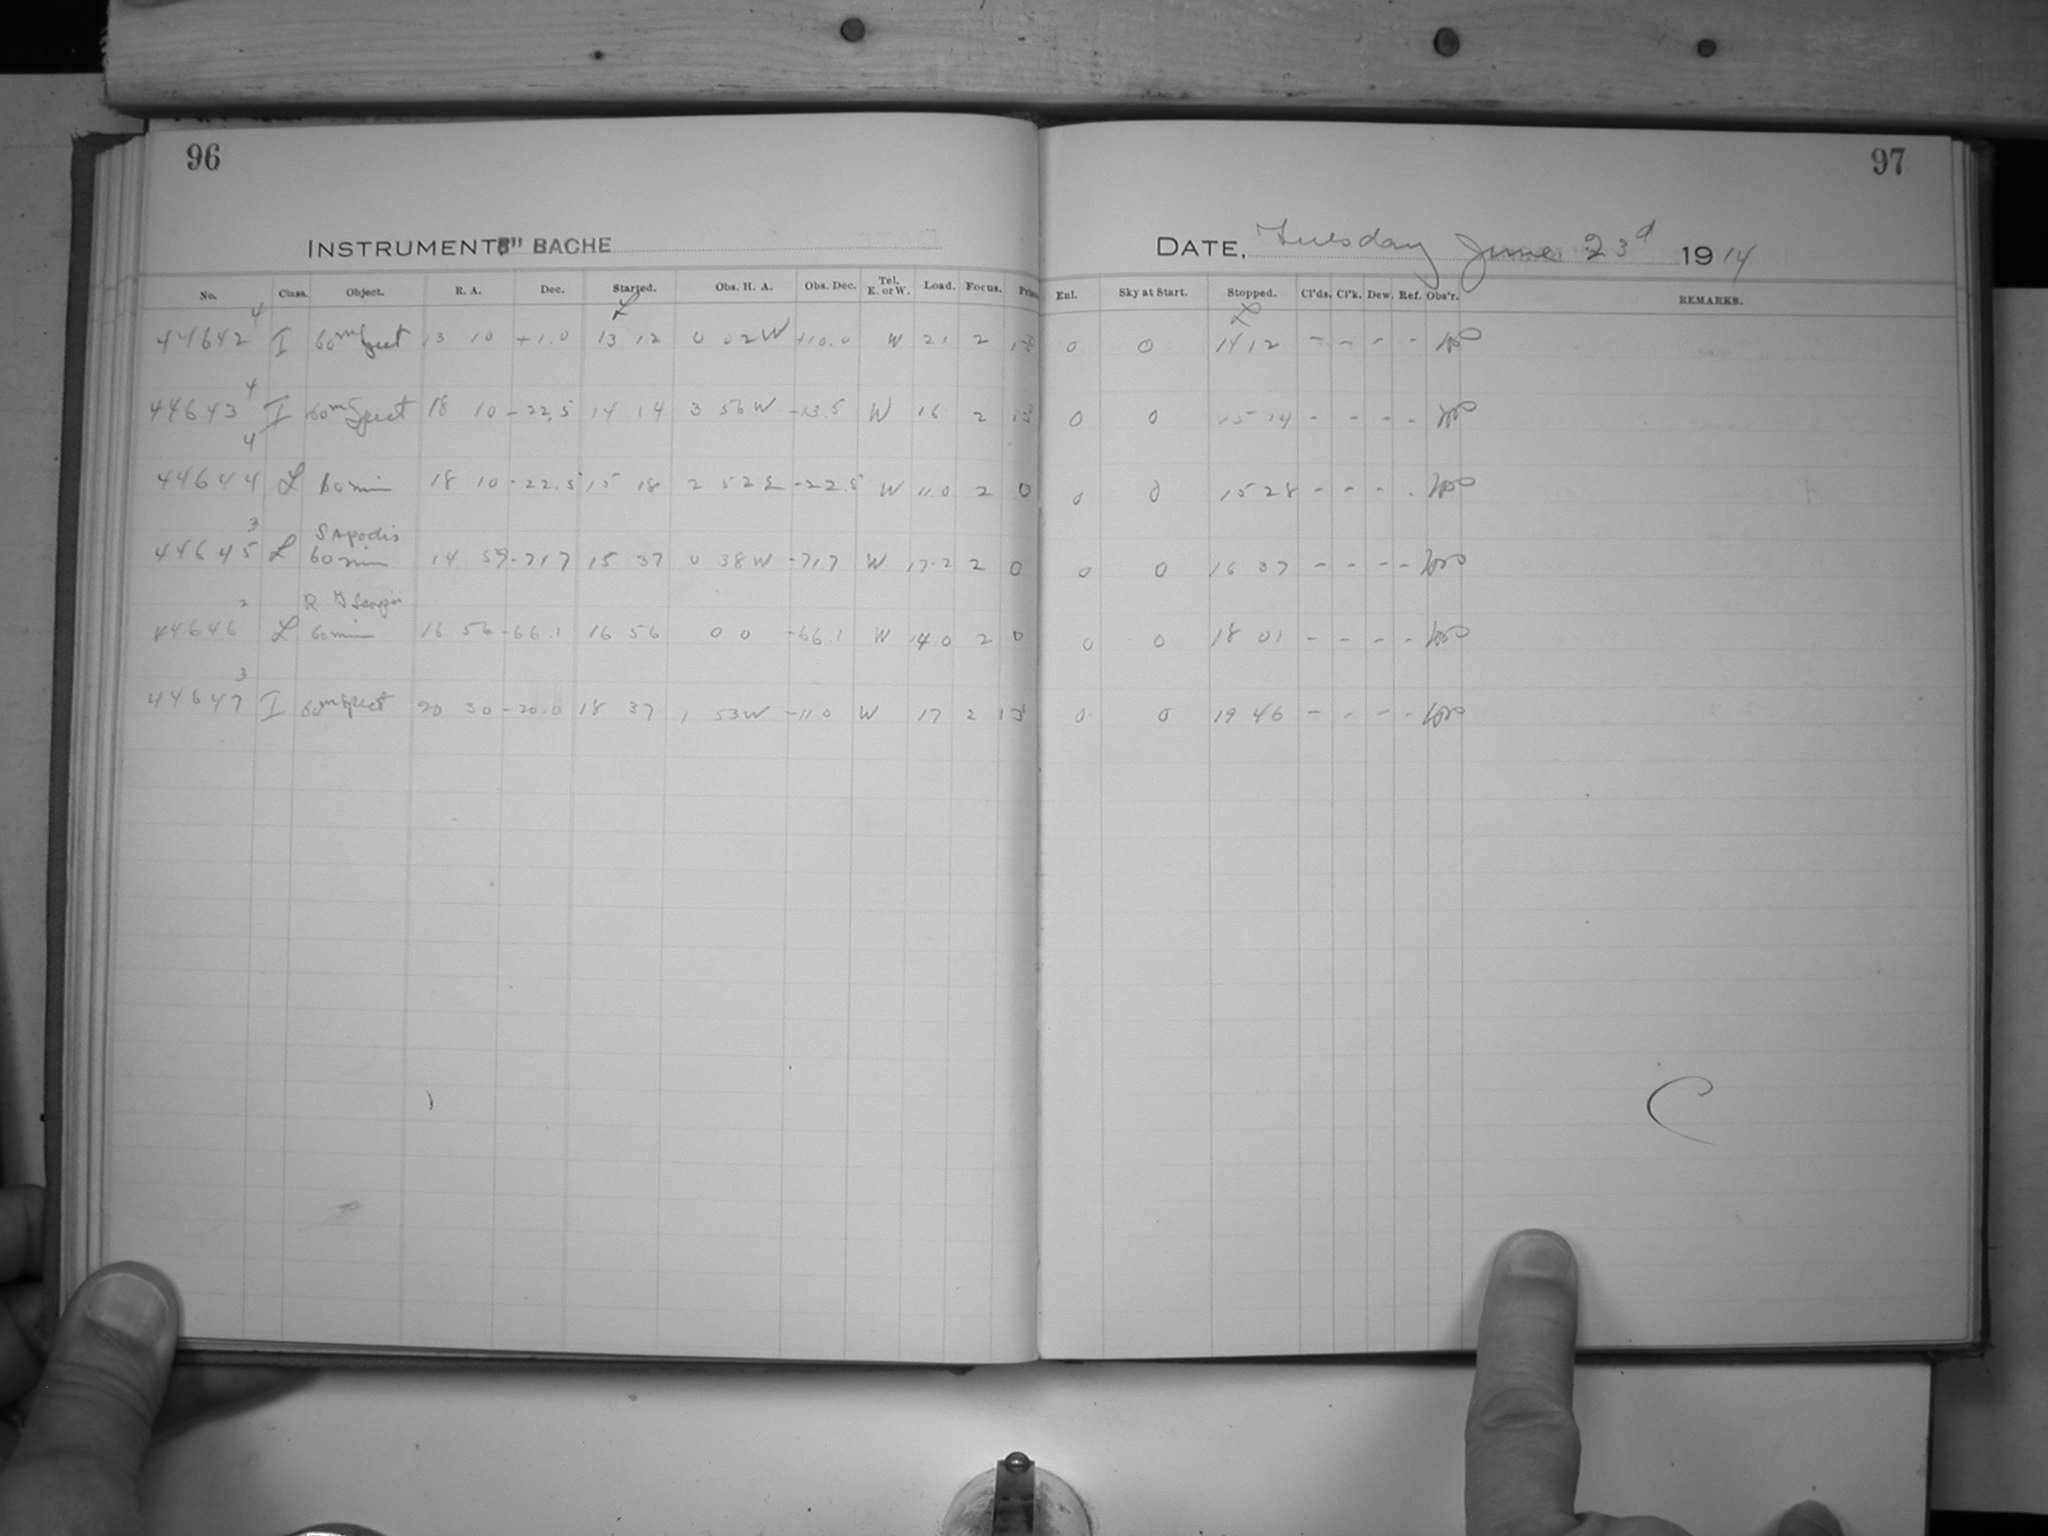 96
INSTRUMENT, 8" BACHE
No. Class. Object. R. A. Dec. Started. Obs. H. A. Obs. Dec. Tel. E. or W. Load. Focus.
44642 4 I 60m Spect 13 10 +1.0 13 12 0 02 W +10.0 W 21 2 13
44643 4 I 60m Spect 18 10 -22.5 14 14 3 56 W -13.5 W 16 2 13
44644 4 L 60 min 18 10 -22.5 15 18 2 52 E -22.5 W 11.0 2 0
44645 3 L S Apodis 60 min 14 59 -71.7 15 37 0 38 W -71.7 W 17.2 2 0
44646 2 L R 60 min 16 56 -66.1 16 56 0 0 -66.1 W 14.0 2 0
44647 3 I 60m Spect 20 30 -20.0 18 37 1 53 W -11.0 W 17 2 13
97
DATE, Tuesday June 23d 1914
Enl. Sky at Start. Stopped. Cl'ds. Cl'k. Dew. Ref. Obs'r. REMARKS.
0 0 14 12 - - - -
0 0 15 14 - - - -
0 0 15 28 - - - -
0 0 16 37 - - - -
0 0 18 01 - - - -
0 0 19 46 - - - -
C